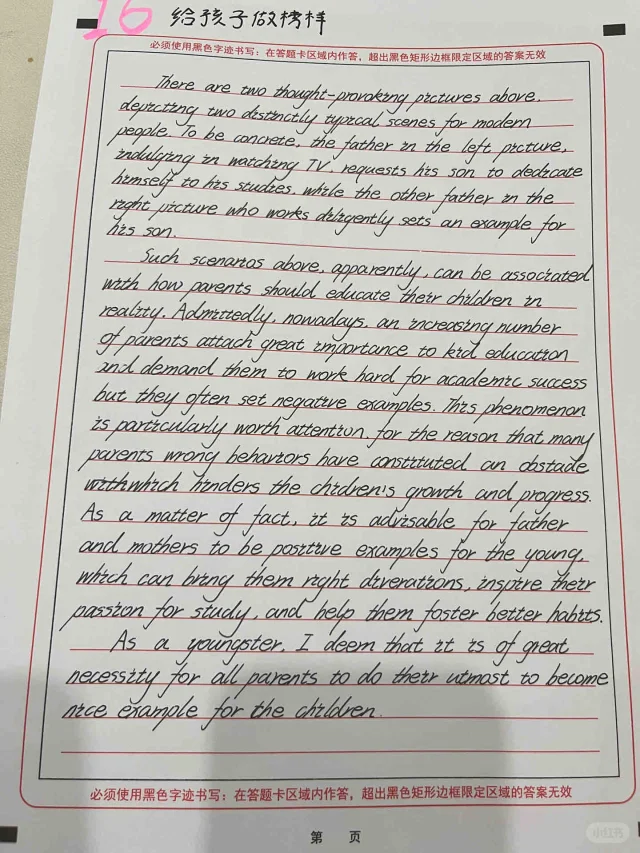 16 给孩子做榜样
必须使用黑色字迹书写：在答题卡区域内作答，超出黑色矩形边框限定区域的答案无效
There are two thought-provoking pictures above,
depicting two distinctly typical scenes for modern
people. To be concrete, the father in the left picture,
indulging in watching TV, requests his son to dedicate
himself to his studies, while the other father in the
right picture who works diligently sets an example for
his son.
Such scenarios above, apparently, can be associated
with how parents should educate their children in
reality. Admittedly, nowadays, an increasing number
of parents attach great importance to kid education
and demand them to work hard for academic success
but they often set negative examples. This phenomenon
is particularly worth attention, for the reason that many
parents wrong behaviors have constituted an obstacle
which hinders the children's growth and progress.
As a matter of fact, it is advisable for father
and mothers to be positive examples for the young,
which can bring them right diverations, inspire their
passion for study, and help them foster better habits.
As a youngster, I deem that it is of great
necessity for all parents to do their utmost to become
nice example for the children.
必须使用黑色字迹书写：在答题卡区域内作答，超出黑色矩形边框限定区域的答案无效
第 页
小红书